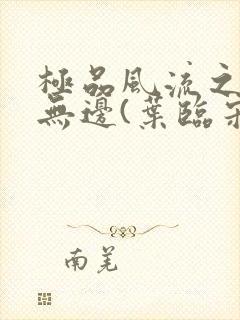 極品風流之
無邊(葉臨
南羌